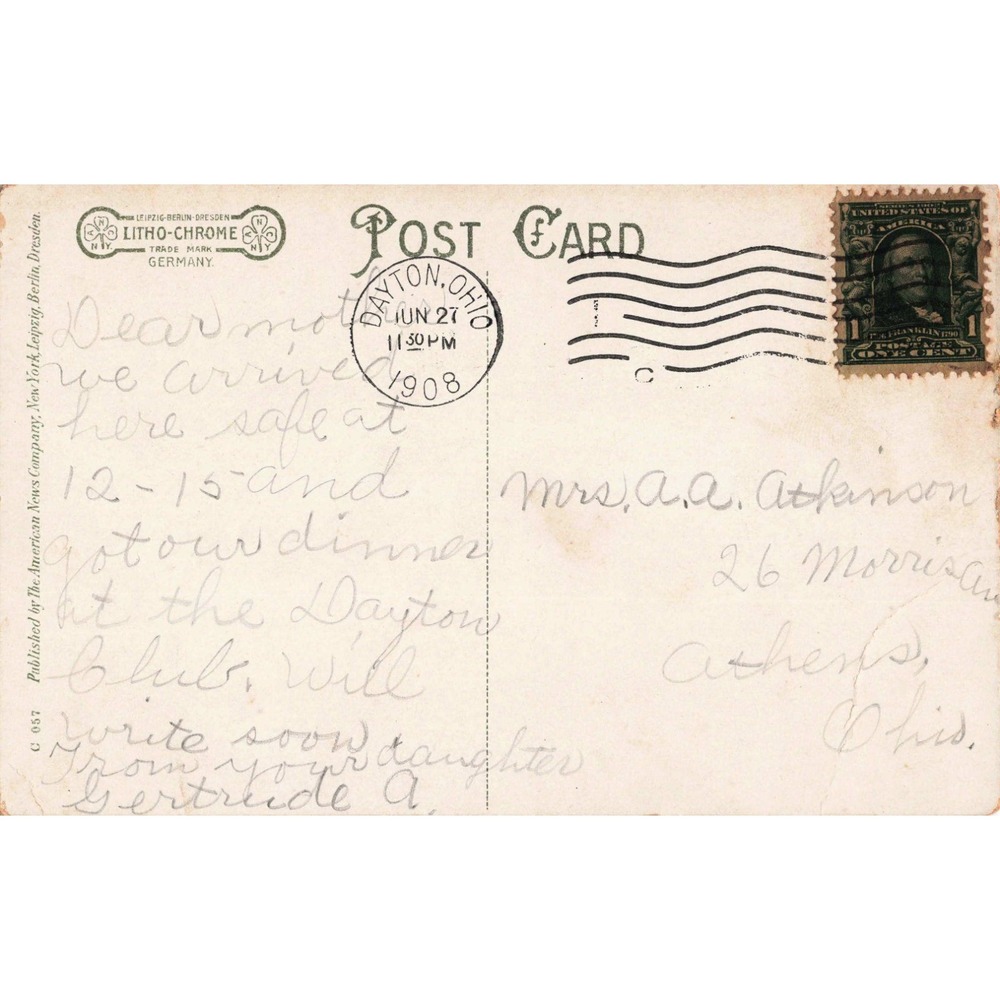 LEIPZIG-BERLIN-DRESDEN
LITHO-CHROME
TRADE MARK
GERMANY.
POST CARD
DAYTON, OHIO
JUN 27
11 30 PM
1908
UNITED STATES OF
AMERICA
1 FRANKLIN 1790 1
POSTAGE
ONE CENT
Dear mother
we arrived
here safe at
12-15 and
got our dinner
at the Dayton
Club. Will
write soon
From your daughter
Gertrude A.
Mrs. A. A. Atkinson
26 Morris Av
Athens,
Ohio.
C 057 Published by The American News Company, New York, Leipzig, Berlin, Dresden.